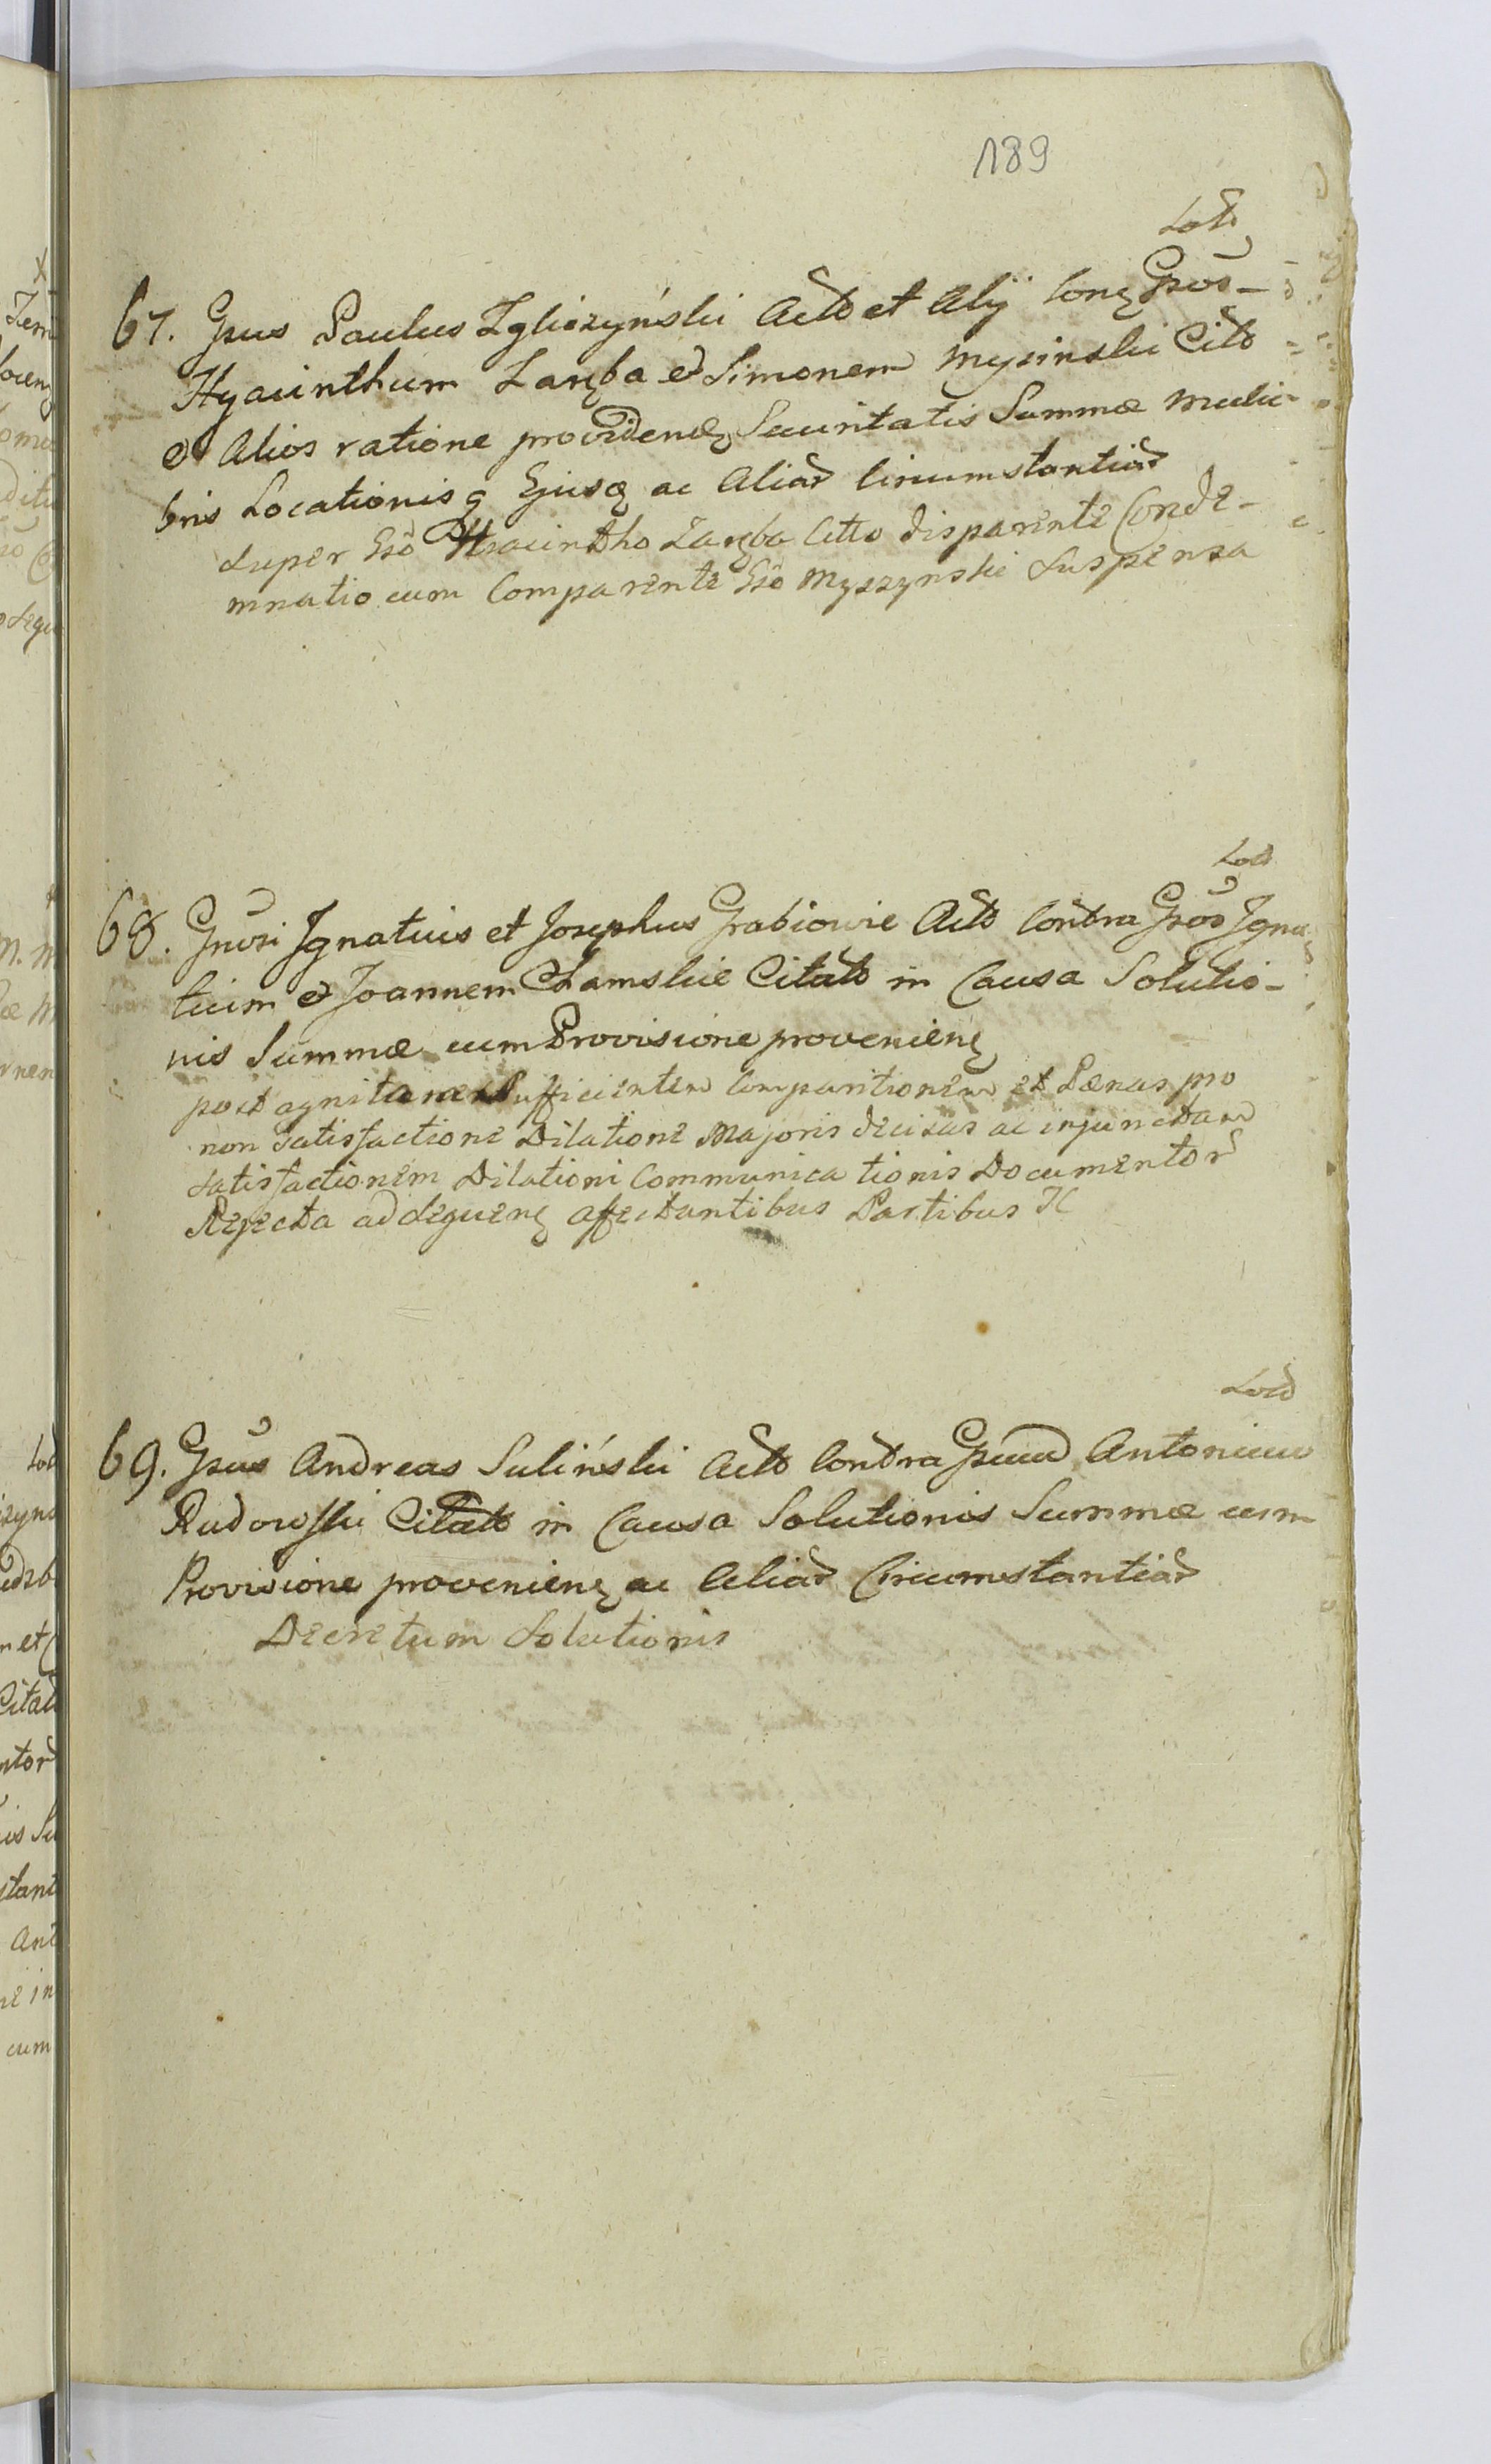 189
67. Gsus Paulus Zgliczyński Acto et Alij Conq Gsos-
Hyacinthum Zaręba et Simonem Myszinski Cito
et Alios ratione providenq Securitatis Summæ mulie-
bris Locationisq Ejusq ac Aliar Circumstantiar
Super Gso Hiacintho Zaręba Citto disparente Conde-
mnatio cum Comparente Gso Myszynski Suspensa
68. Gnosi Ignatius et Josephus Grabiowie Acto Contra Gsos Igna
tium et Joannem Chamskie Citato in Causa Solutio-
nis Summæ cum Provisione provenienq
post agnitam Sufficientem Comparitionem et Pænas pro
non Satisfactione Dilatione Majoris decisas ac injunctam
Satisfactionem Dilationi Communicationis Documentor
Rejecta ad Sequenq affectantibus Partibus
69. Gsus Andreas Suliński Acto Contra Gsum Antonium
Rudowski Citato in Causa Solutionis Summæ cum
Provisione provenienq ac Aliar Circumstantiar
Decretum Solutionis